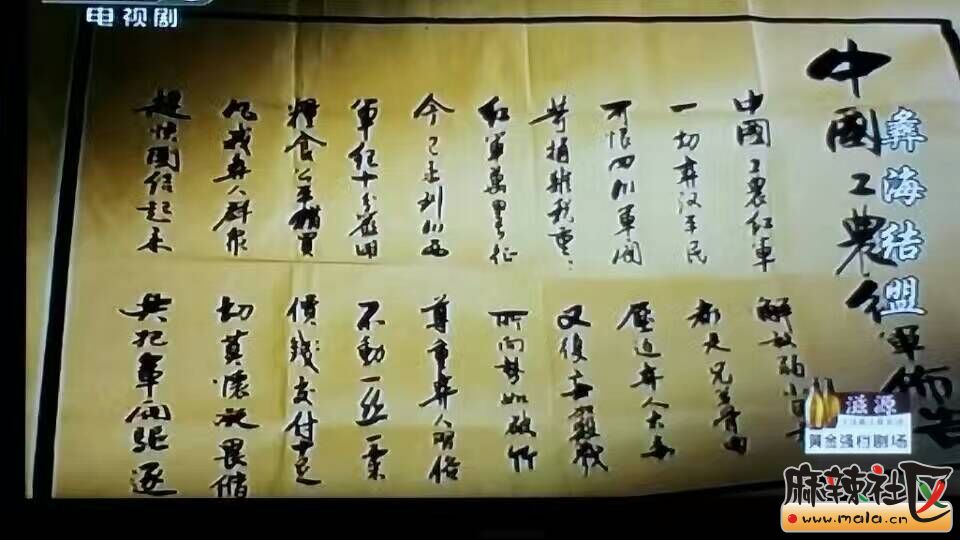 电视剧
彝海结盟
中國工農红軍佈告
中國工農红軍
解放弱小
一切彝汉平民
都是兄弟骨肉
可恨四川軍阀
壓迫彝人太毒
苛捐雜税重:
又復妄殺戮
红軍萬里征
所向势如破竹
今已来到川西
尊重彝人風俗
軍纪十分嚴明
不動一丝一粟
糧食公平購買
價錢交付十足
凡我彝人群众
切莫懷疑畏缩
趕快團结起来
共把軍阀驱逐
滋源
黄金强档剧场
麻辣社区
www.mala.cn